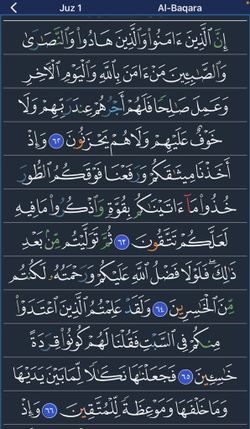 Juz 1 Al-Baqara
إِنَّ ٱلَّذِينَ ءَامَنُوا۟ وَٱلَّذِينَ هَادُوا۟ وَٱلنَّصَـٰرَىٰ
وَٱلصَّـٰبِـِٔينَ مَنْ ءَامَنَ بِٱللَّهِ وَٱلْيَوْمِ ٱلْـَٔاخِرِ
وَعَمِلَ صَـٰلِحًا فَلَهُمْ أَجْرُهُمْ عِندَ رَبِّهِمْ وَلَا
خَوْفٌ عَلَيْهِمْ وَلَا هُمْ يَحْزَنُونَ ٦٢ وَإِذْ
أَخَذْنَا مِيثَـٰقَكُمْ وَرَفَعْنَا فَوْقَكُمُ ٱلطُّورَ
خُذُوا۟ مَآ ءَاتَيْنَـٰكُم بِقُوَّةٍ وَٱذْكُرُوا۟ مَا فِيهِ
لَعَلَّكُمْ تَتَّقُونَ ٦٣ ثُمَّ تَوَلَّيْتُم مِّنۢ بَعْدِ
ذَٰلِكَ ۖ فَلَوْلَا فَضْلُ ٱللَّهِ عَلَيْكُمْ وَرَحْمَتُهُۥ لَكُنتُم
مِّنَ ٱلْخَـٰسِرِينَ ٦٤ وَلَقَدْ عَلِمْتُمُ ٱلَّذِينَ ٱعْتَدَوْا۟
مِنكُمْ فِى ٱلسَّبْتِ فَقُلْنَا لَهُمْ كُونُوا۟ قِرَدَةً
خَـٰسِـِٔينَ ٦٥ فَجَعَلْنَـٰهَا نَكَـٰلًا لِّمَا بَيْنَ يَدَيْهَا
وَمَا خَلْفَهَا وَمَوْعِظَةً لِّلْمُتَّقِينَ ٦٦ وَإِذْ